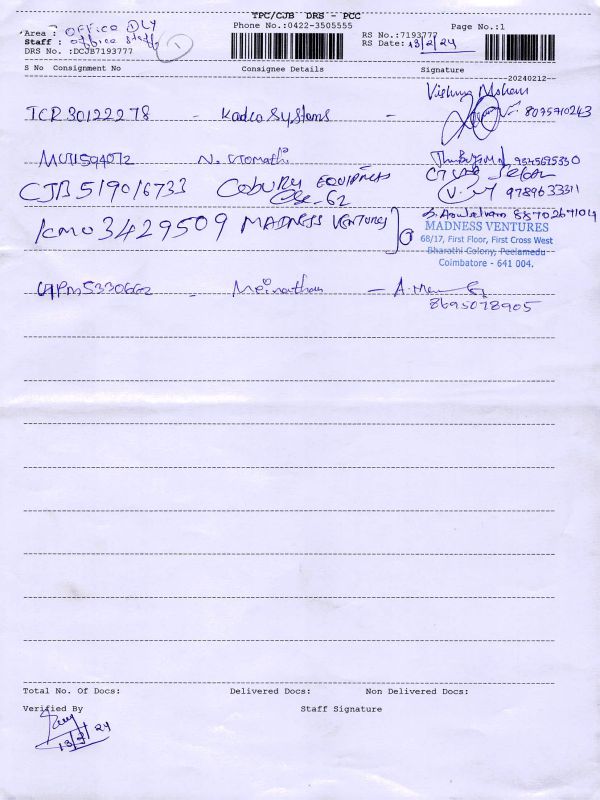 TPC/CJB DRS - PCC
Area : OFFice DLY
Phone No.:0422-3505555
Page No.:1
Staff : office staff
1
RS No.:7193777
DRS No.:DCJB7193777
RS Date: 13/2/24
S No Consignment No Consignee Details Signature
20240212
Vishnu Mohan
TCR 30122278 - Kadco Systems - 8075710243
N. Gomathi
CJB 519016733 Cobury EQUIPMENTS
CBE-62
9789633311
KMU 3429509 MADNESS VENTURES
MADNESS VENTURES
68/17, First Floor, First Cross West
Bharathi Colony, Peelamedu
Coimbatore - 641 004.
5330662 - Meinathan -
8695078905
Total No. Of Docs: Delivered Docs: Non Delivered Docs:
Verified By Staff Signature
13/2/24